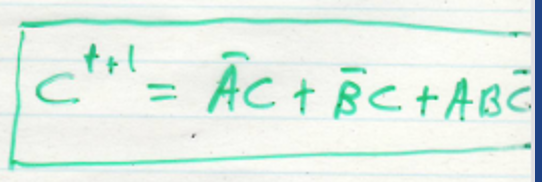 C^{t+1} = ĀC + B̄C + ABC̄